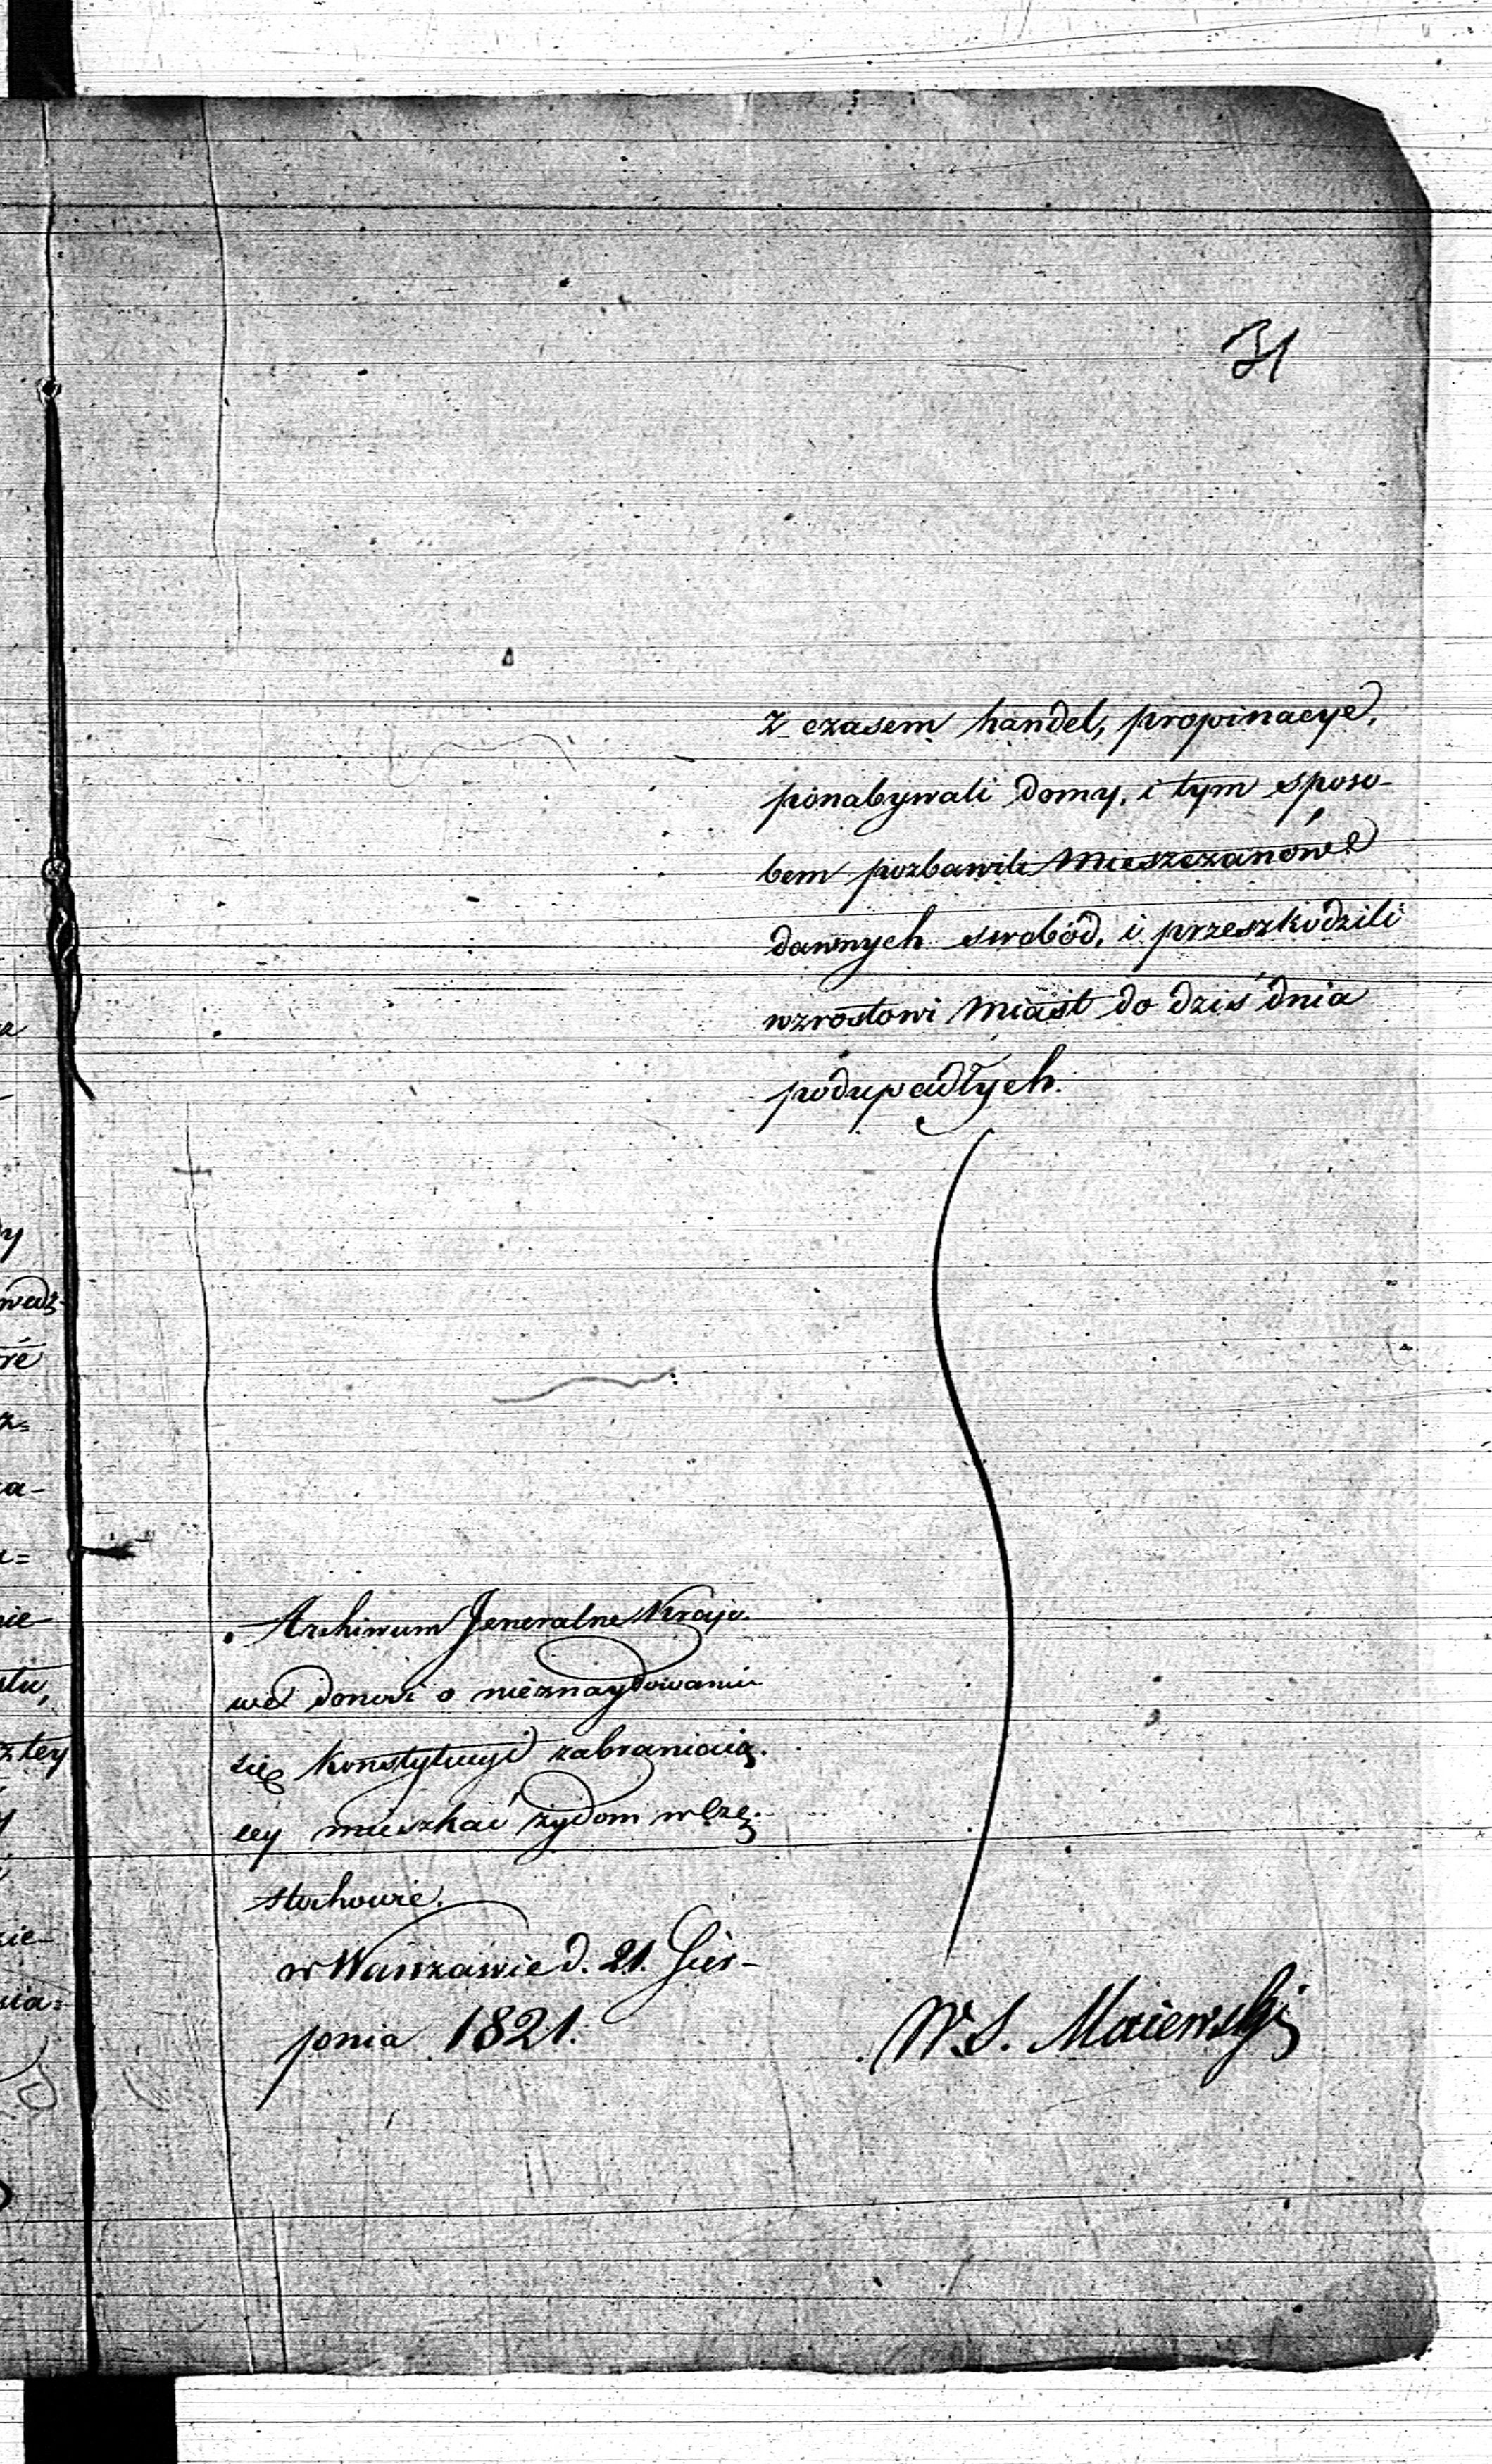 31
z czasem handel, propinacye,
ponabywali domy, i tym sposo-
bem pozbawili Mieszczanów
dawnych swobód, i przeszkodzili
wzrostowi Miast do dziś dnia
podupadłych.
Archiwum Jeneralne Krajo-
we donosi o nieznaydowaniu
się Konstytucyi zabraniaią-
cey mieszkać żydom w Czę-
stochowie.
w Warszawie d. 21. Sier-
pnia 1821.
W. S. Maiewski